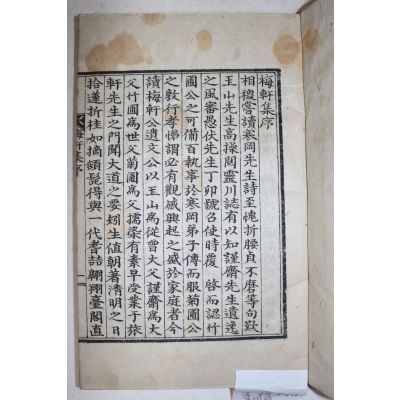 梅軒集序
相稷嘗讀寒岡先生詩至愧折腰貞不磨等句歎
玉山先生高操閱靈川誌有以知謹齋先生遺逸
之風審愚伏先生丁卯號召使時覆啓而認竹
圃公之可備百執事於寒岡弟子傳而服菊圃公
之敦行孝悌謂必有觀感興起之盛於家庭者今
讀梅軒公遺文公以玉山爲從曾大父謹齋爲大
父竹圃爲世父菊圃爲父擩染有素早受業于旅
軒先生之門聞大道之要矧生値朝著清明之日
拾蓮折桂如摘頷髭得與一代耆喆翺翔臺閣直
梅軒集序
一